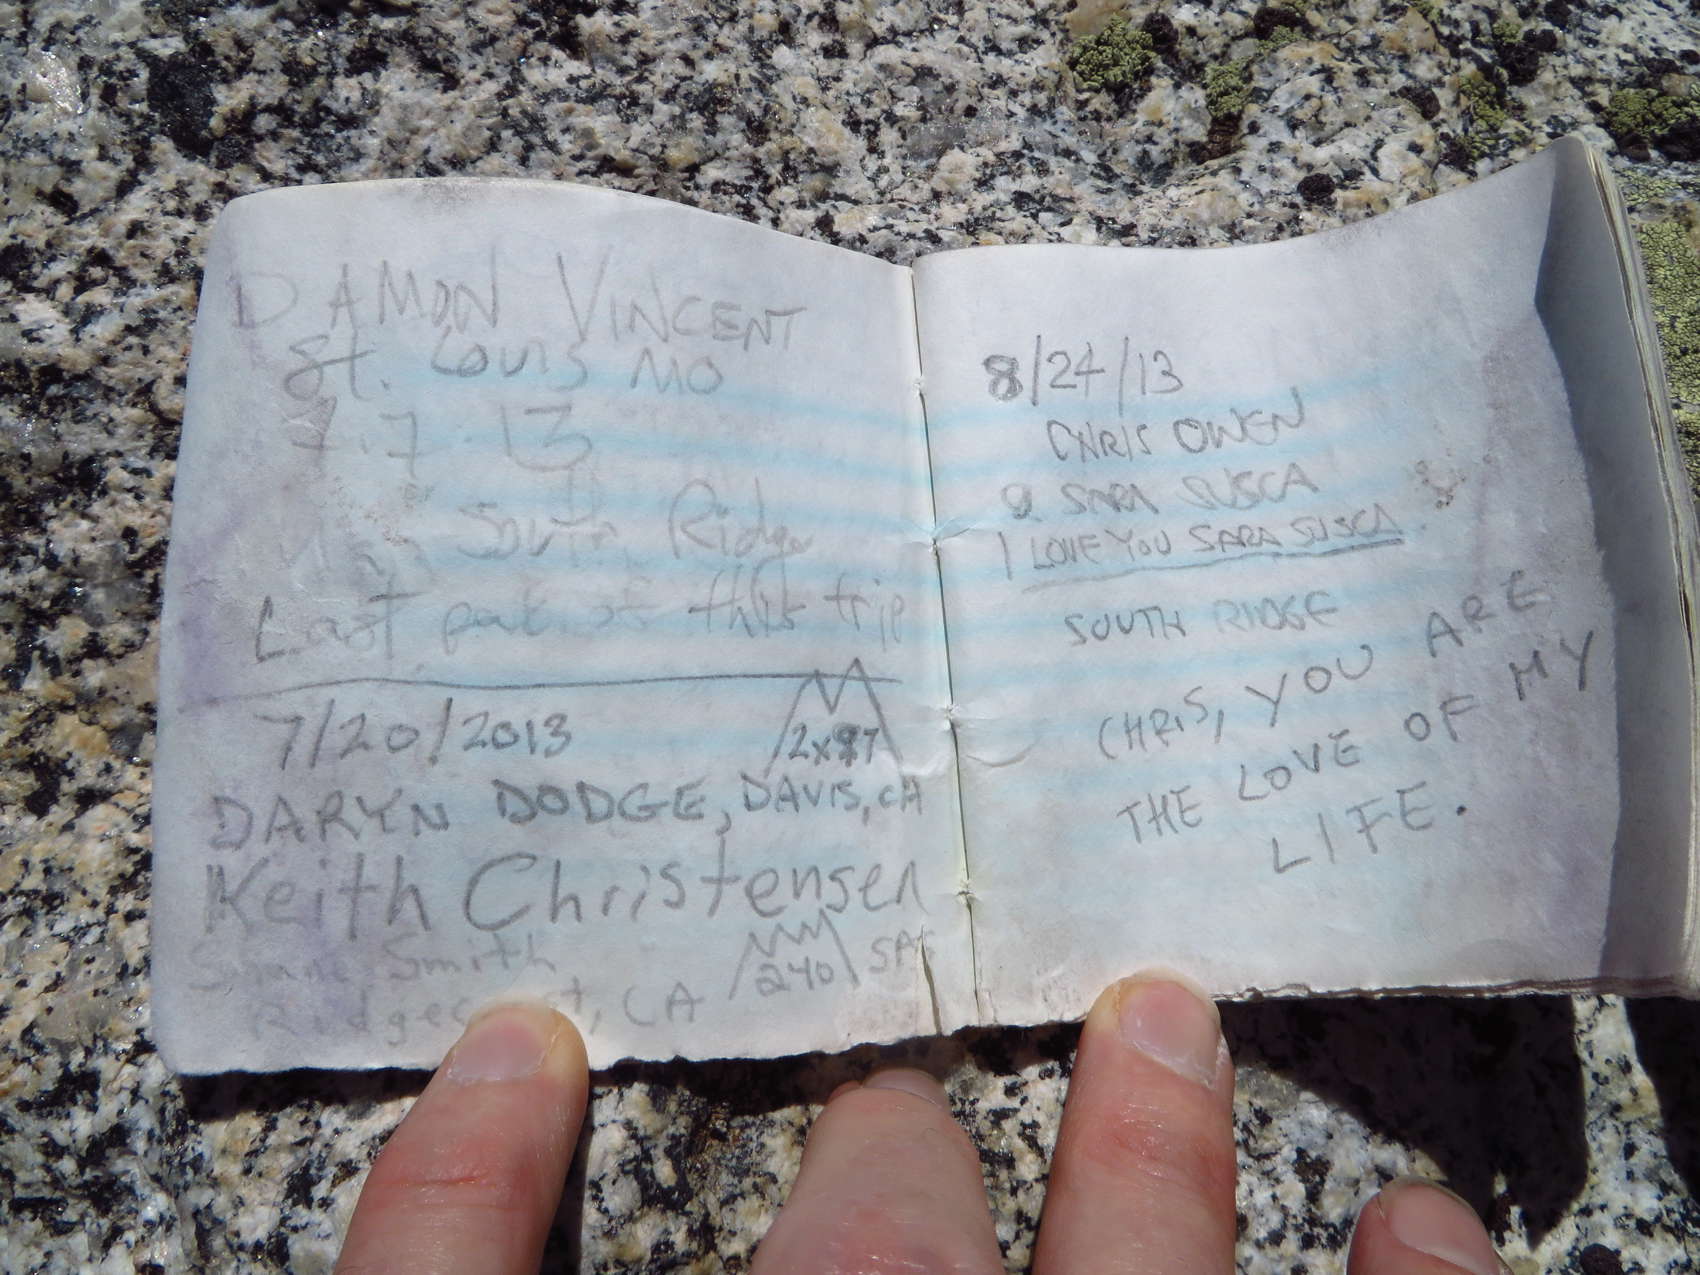 DAMON VINCENT
St. Louis MO
7.7 13
South Ridge
Last part of this trip
7/20/2013
2x97
DARYN DODGE, DAVIS, CA
Keith Christensen
Smith
240 SPS
Ridgecrest, CA
8/24/13
CHRIS OWEN
& SARA SUSCA
I LOVE YOU SARA SUSCA
SOUTH RIDGE
CHRIS, YOU ARE
THE LOVE OF MY
LIFE.